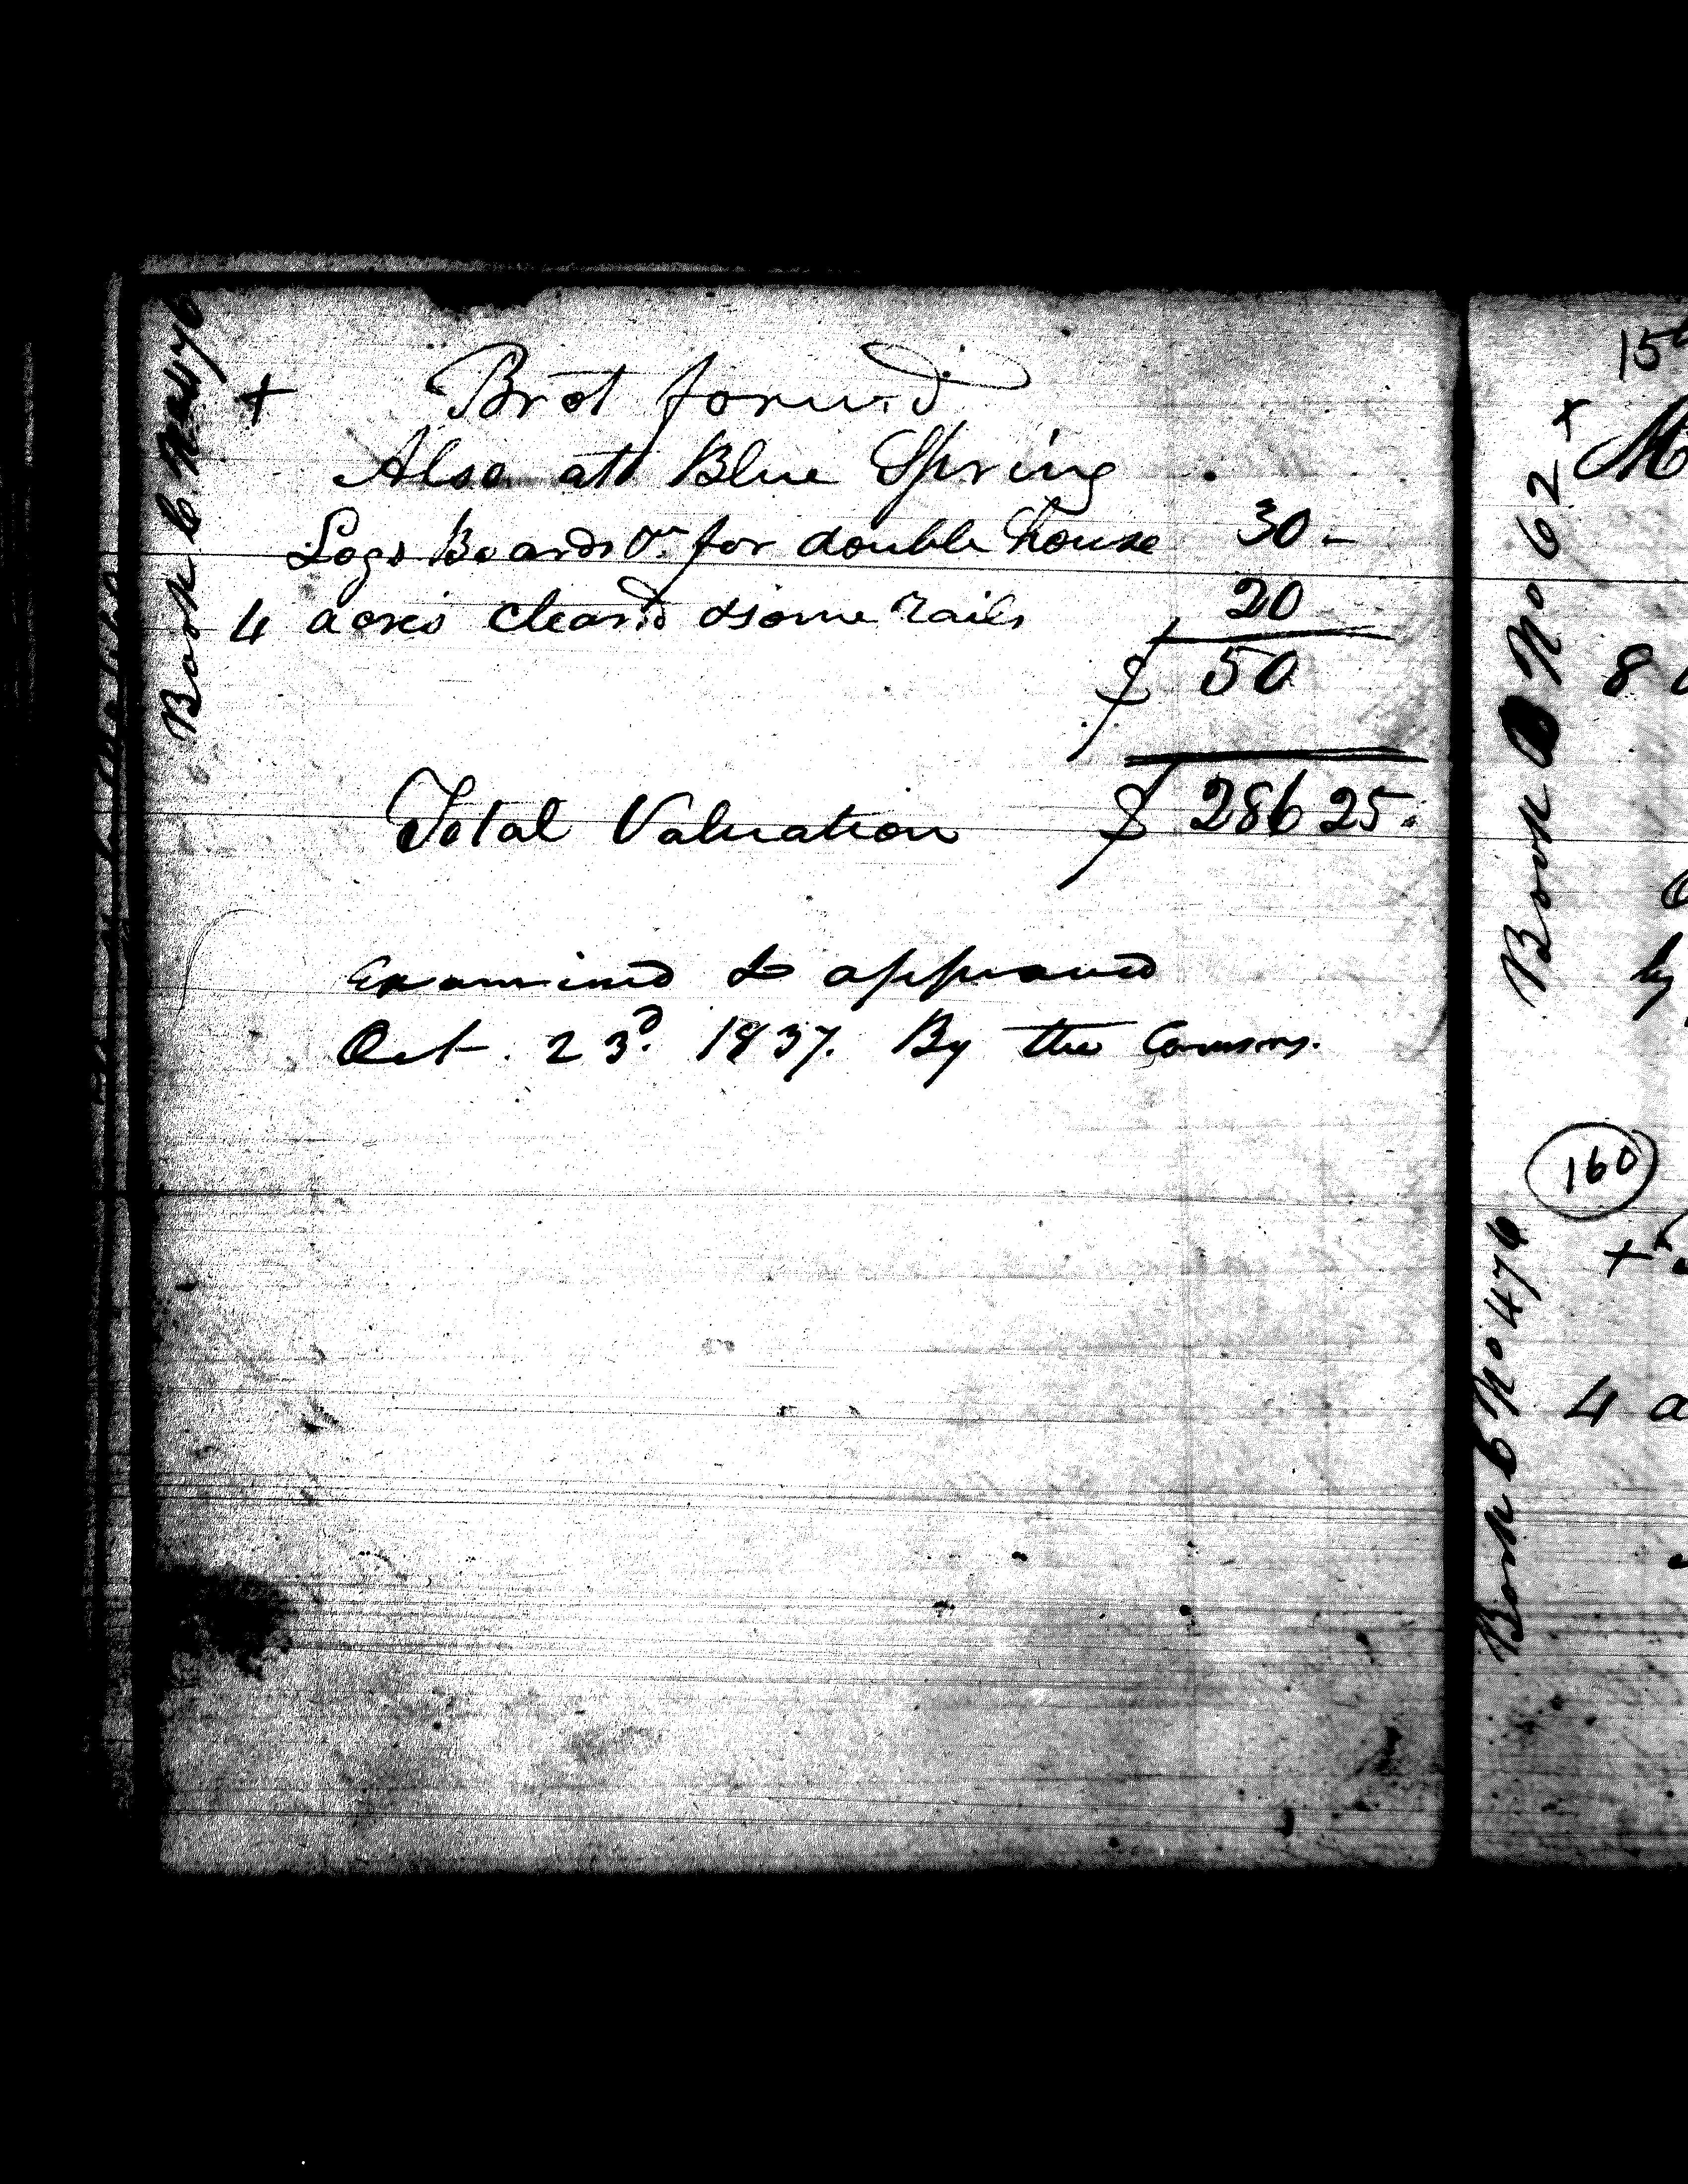 Book 6 No 476
+ Bro't forw'd
Also at Blue Spring
Logs Boards &c for double house 30 –
4 acres clear'd & some rails 20
$ 50
Total Valuation $ 286 25
Examined & approved
Oct. 23d 1837. By the Comms.
15
+ M
8
Book B No 62
by
160
+
4 a
Book 6 No 476